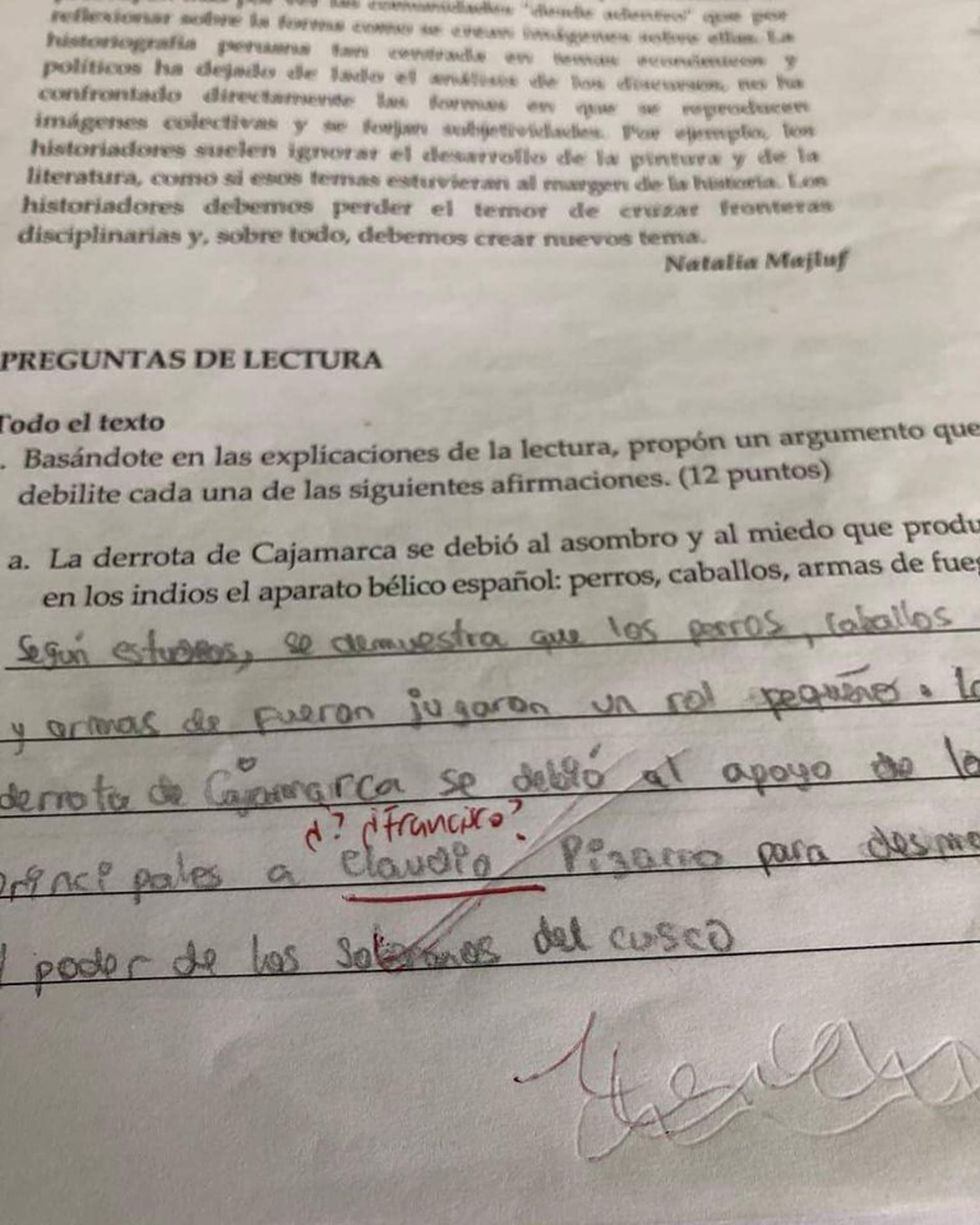 reflexionar sobre la forma como se crean imágenes sobre ellas. La
historiografía peruana tan centrada en temas económicos y
políticos ha dejado de lado el análisis de los discursos, no ha
confrontado directamente las formas en que se reproducen
imágenes colectivas y se forjan subjetividades. Por ejemplo, los
historiadores suelen ignorar el desarrollo de la pintura y de la
literatura, como si esos temas estuvieran al margen de la historia. Los
historiadores debemos perder el temor de cruzar fronteras
disciplinarias y, sobre todo, debemos crear nuevos tema.
Natalia Majluf
PREGUNTAS DE LECTURA
Todo el texto
. Basándote en las explicaciones de la lectura, propón un argumento que
debilite cada una de las siguientes afirmaciones. (12 puntos)
a. La derrota de Cajamarca se debió al asombro y al miedo que produ
en los indios el aparato bélico español: perros, caballos, armas de fueg
Según estudios, se demuestra que los perros, caballos
y armas de fueron jugaron un rol pequeño. La
derrota de Cajamarca se debió al apoyo de lo
¿? ¿Francisco?
principales a Claudio Pizarro para despre
l poder de los soberanos del cusco